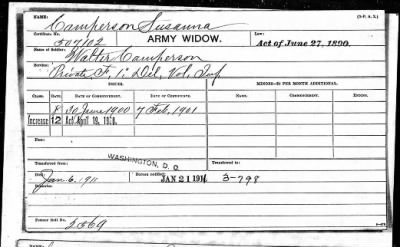 NAME:
(3-P. A. X.)
Camperson Susanna
Certificate No.
507102
ARMY WIDOW.
Law:
Act of June 27, 1890.
Name of Soldier:
Walter Camperson
Service:
Private F, 1" Del. Vol. Inf
ISSUES.
MINORS—$2 PER MONTH ADDITIONAL.
CLASS. RATE. DATE OF COMMENCEMENT. DATE OF CERTIFICATE. NAME. COMMENCEMENT. ENDING.
8 30 June 1900 7 Feb, 1901
Increase 12 Act April 19, 1908.
Transferred from
WASHINGTON, D. C.
Transferred to
Died:
Jan 6, 1911
Bureau notified:
JAN 21 1911
3-798
Former Roll No.
2569